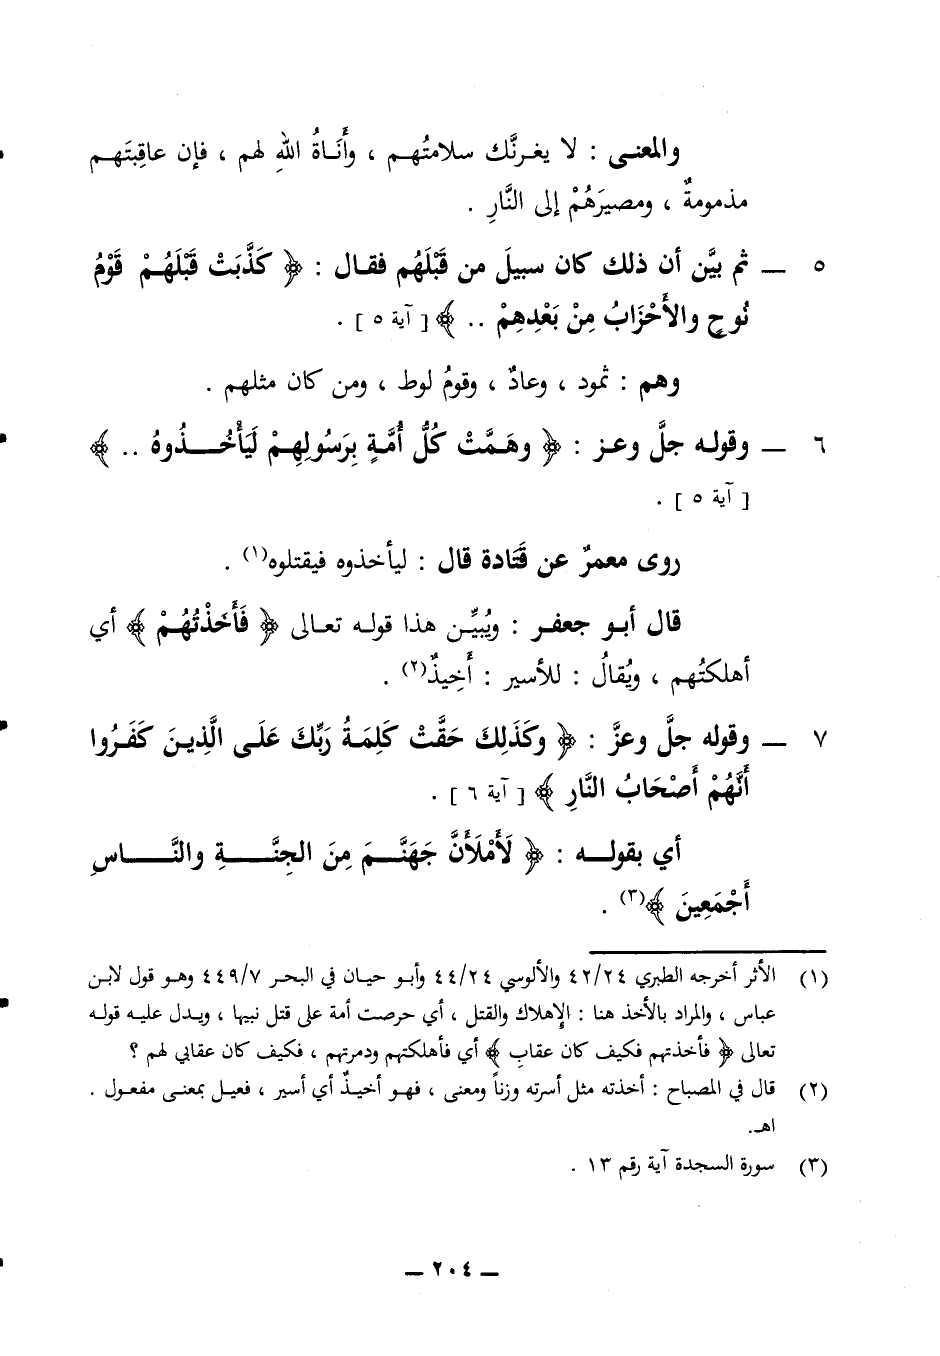 والمعنـى : لا يغـرنَّك سلامتُهـم ، وأَنَـاةُ اللهِ لهم ، فإن عاقِبتَهـم
مذمومةٌ ، ومصيرَهُمْ إلى النَّارِ .
٥ ــ ثم بيَّن أن ذلك كان سبيلَ من قَبْلَهُم فقـال : ﴿ كَذَّبَتْ قَبْلَهُـمْ قَوْمُ
نُوحٍ والأَحْزَابُ مِنْ بَعْدِهِمْ .. ﴾ [ آية ٥ ] .
وهم : ثمود ، وعادٌ ، وقومُ لوط ، ومن كان مثلهم .
٦ ــ وقولـه جلَّ وعـز : ﴿ وهَمَّتْ كُلُّ أُمَّةٍ بِرَسُولِهِمْ لَيَأْخُـــذُوهُ .. ﴾
[ آية ٥ ] .
روى معمرٌ عن قَتَادة قال : ليأخذوه فيقتلوه(١) .
قال أبـو جعفـر : ويُبيِّـن هذا قولـه تعـالى ﴿ فَأَخَذْتُهُـمْ ﴾ أي
أهلكتُهم ، ويُقالُ : للأسير : أَخِيذٌ(٢) .
٧ ــ وقوله جلَّ وعزَّ : ﴿ وكَذَلِكَ حَقَّتْ كَلِمَةُ رَبِّكَ عَلَـى الَّذِيـنَ كَفَـرُوا
أَنَّهُمْ أَصْحَابُ النَّارِ ﴾ [ آية ٦ ] .
أي بقولــه : ﴿ لَأَمْلَأَنَّ جَهَنَّــمَ مِنَ الجِنَّــــةِ والنَّــــاسِ
أَجْمَعِينَ ﴾(٣) .
(١) الأثر أخرجه الطبري ٤٢/٢٤ والألوسي ٤٤/٢٤ وأبو حيـان في البحر ٤٤٩/٧ وهـو قول لابن
عباس ، والمراد بالأخذ هنا : الإهلاك والقتل ، أي حرصت أمة على قتل نبيها ، ويـدل عليـه قولـه
تعالى ﴿ فأخذتهم فكيف كان عقابِ ﴾ أي فأهلكتهم ودمرتهم ، فكيف كان عقابي لهم ؟
(٢) قال في المصباح : أخذته مثل أسرته وزناً ومعنى ، فهـو أخيـذٌ أي أسير ، فعيـل بمعنـى مفعـول .
اهـ.
(٣) سورة السجدة آية رقم ١٣ .
ــ ٢٠٤ ــ